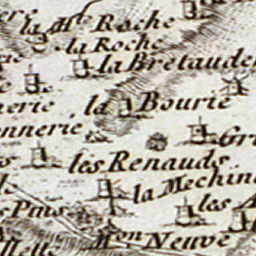 la Hte Roche
la Roche
la Bretaude
la Bourie
nnerie
les Renauds
la Mechin
les A
Pins
Mon Neuve